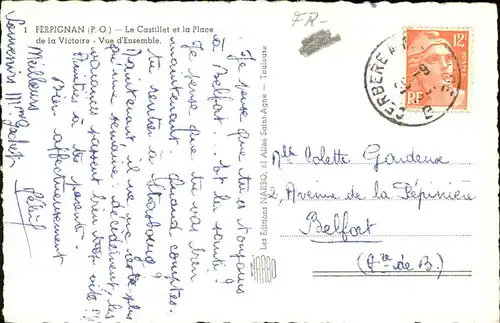 1 PERPIGNAN (P.-O.) — Le Castillet et la Place
de la Victoire - Vue d'Ensemble.
Je pense que tu es toujours
à Belfort. et la santé ?
Je pense que tu vas bien
maintenant. Quand comptes-
tu rentrer à Strasbourg ?
Maintenant, il ne me reste plus
qu'une semaine : décidément, les
vacances passent bien trop vite !!!
Amitiés à tes parents.
Bien affectueusement
Meilleurs
Souvenirs
Les Editions NARBO, 21 Allée Saint-Agne - Toulouse
NARBO
FR-
CERBERE
12F
POSTES
RF
Melle Colette Gardeuse
2, Avenue de la Pépinière
Belfort
(Tre de B.)